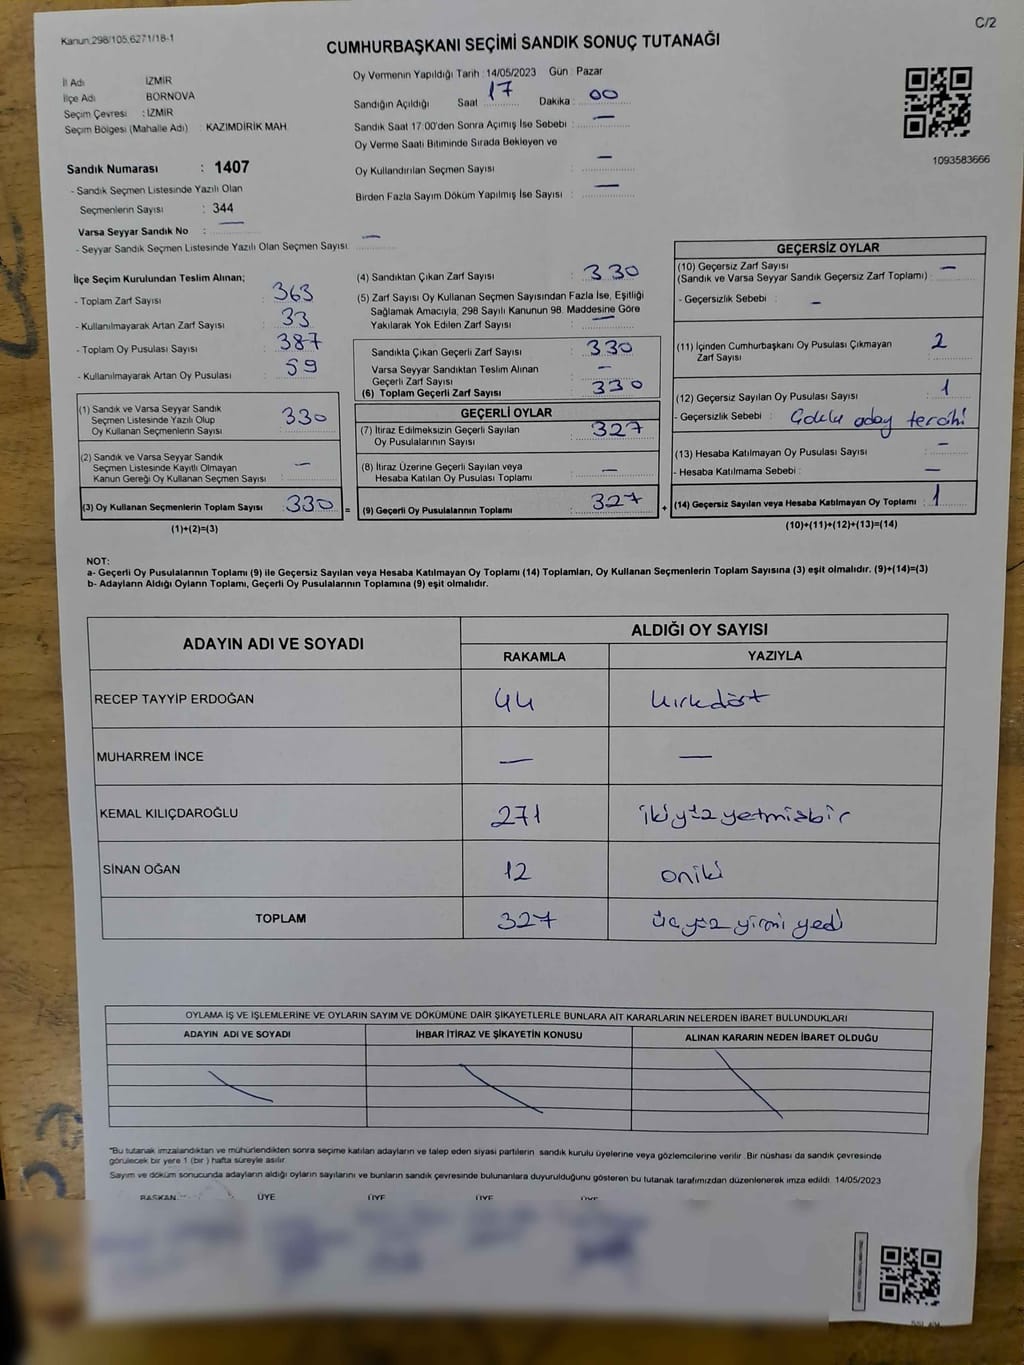 Kanun:298/105,6271/18-1
C/2
CUMHURBAŞKANI SEÇİMİ SANDIK SONUÇ TUTANAĞI
İl Adı İZMİR
İlçe Adı BORNOVA
Seçim Çevresi : İZMİR
Seçim Bölgesi (Mahalle Adı) : KAZIMDİRİK MAH.
Sandık Numarası : 1407
- Sandık Seçmen Listesinde Yazılı Olan
Seçmenlerin Sayısı : 344
Varsa Seyyar Sandık No : —
- Seyyar Sandık Seçmen Listesinde Yazılı Olan Seçmen Sayısı: —
Oy Vermenin Yapıldığı Tarih : 14/05/2023 Gün : Pazar
Sandığın Açıldığı Saat : 17 Dakika : 00
Sandık Saat 17:00'den Sonra Açılmış İse Sebebi : —
Oy Verme Saati Bitiminde Sırada Bekleyen ve
Oy Kullandırılan Seçmen Sayısı : —
Birden Fazla Sayım Döküm Yapılmış İse Sayısı : —
1093583666
İlçe Seçim Kurulundan Teslim Alınan;
- Toplam Zarf Sayısı : 363
- Kullanılmayarak Artan Zarf Sayısı : 33
- Toplam Oy Pusulası Sayısı : 387
- Kullanılmayarak Artan Oy Pusulası : 59
(1) Sandık ve Varsa Seyyar Sandık
Seçmen Listesinde Yazılı Olup
Oy Kullanan Seçmenlerin Sayısı : 330
(2) Sandık ve Varsa Seyyar Sandık
Seçmen Listesinde Kayıtlı Olmayan
Kanun Gereği Oy Kullanan Seçmen Sayısı : —
(3) Oy Kullanan Seçmenlerin Toplam Sayısı : 330 =
(1)+(2)=(3)
(4) Sandıktan Çıkan Zarf Sayısı : 330
(5) Zarf Sayısı Oy Kullanan Seçmen Sayısından Fazla İse, Eşitliği
Sağlamak Amacıyla, 298 Sayılı Kanunun 98. Maddesine Göre
Yakılarak Yok Edilen Zarf Sayısı : —
Sandıkta Çıkan Geçerli Zarf Sayısı : 330
Varsa Seyyar Sandıktan Teslim Alınan
Geçerli Zarf Sayısı : —
(6) Toplam Geçerli Zarf Sayısı : 330
GEÇERLİ OYLAR
(7) İtiraz Edilmeksizin Geçerli Sayılan
Oy Pusulalarının Sayısı : 327
(8) İtiraz Üzerine Geçerli Sayılan veya
Hesaba Katılan Oy Pusulası Toplamı : —
(9) Geçerli Oy Pusulalarının Toplamı : 327 +
GEÇERSİZ OYLAR
(10) Geçersiz Zarf Sayısı
(Sandık ve Varsa Seyyar Sandık Geçersiz Zarf Toplamı) : —
- Geçersizlik Sebebi : —
(11) İçinden Cumhurbaşkanı Oy Pusulası Çıkmayan
Zarf Sayısı : 2
(12) Geçersiz Sayılan Oy Pusulası Sayısı : 1
- Geçersizlik Sebebi : Çoklu aday tercihi
(13) Hesaba Katılmayan Oy Pusulası Sayısı : —
- Hesaba Katılmama Sebebi : —
(14) Geçersiz Sayılan veya Hesaba Katılmayan Oy Toplamı : 1
(10)+(11)+(12)+(13)=(14)
NOT:
a- Geçerli Oy Pusulalarının Toplamı (9) ile Geçersiz Sayılan veya Hesaba Katılmayan Oy Toplamı (14) Toplamları, Oy Kullanan Seçmenlerin Toplam Sayısına (3) eşit olmalıdır. (9)+(14)=(3)
b- Adayların Aldığı Oyların Toplamı, Geçerli Oy Pusulalarının Toplamına (9) eşit olmalıdır.
ADAYIN ADI VE SOYADI ALDIĞI OY SAYISI
RAKAMLA YAZIYLA
RECEP TAYYİP ERDOĞAN 44 kırkdört
MUHARREM İNCE — —
KEMAL KILIÇDAROĞLU 271 ikiyüz yetmişbir
SİNAN OĞAN 12 oniki
TOPLAM 327 üçyüz yirmi yedi
OYLAMA İŞ VE İŞLEMLERİNE VE OYLARIN SAYIM VE DÖKÜMÜNE DAİR ŞİKAYETLERLE BUNLARA AİT KARARLARIN NELERDEN İBARET BULUNDUKLARI
ADAYIN ADI VE SOYADI İHBAR İTİRAZ VE ŞİKAYETİN KONUSU ALINAN KARARIN NEDEN İBARET OLDUĞU
*Bu tutanak imzalandıktan ve mühürlendikten sonra seçime katılan adayların ve talep eden siyasi partilerin sandık kurulu üyelerine veya gözlemcilerine verilir. Bir nüshası da sandık çevresinde
görülecek bir yere 1 (bir) hafta süreyle asılır.
Sayım ve döküm sonucunda adayların aldığı oyların sayılarını ve bunların sandık çevresinde bulunanlara duyurulduğunu gösteren bu tutanak tarafımızdan düzenlenerek imza edildi. 14/05/2023
BAŞKAN ÜYE ÜYE ÜYE ÜYE